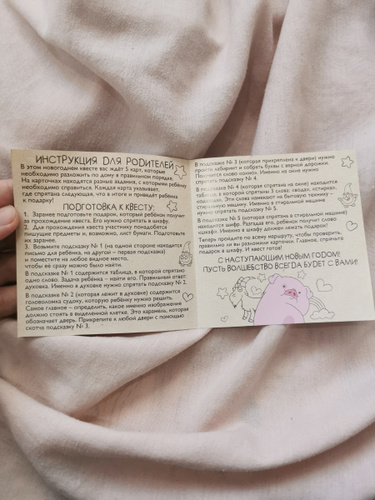 ИНСТРУКЦИЯ ДЛЯ РОДИТЕЛЕЙ
В этом новогоднем квесте вас ждёт 5 карт, которые
необходимо разложить по дому в правильном порядке.
На карточках находятся разные задания, с которыми ребёнку
необходимо справиться. Каждая карта указывает,
где спрятана следующая, что в итоге и приведёт ребёнка
к подарку!
ПОДГОТОВКА К КВЕСТУ:
1. Заранее подготовьте подарок, который ребёнок получит
за прохождение квеста. Его нужно спрятать в шкафу.
2. Для прохождения квеста участнику понадобится
пишущие предметы и, возможно, лист бумаги. Подготовьте
их заранее.
3. Возьмите подсказку № 1 (на одной стороне находится
письмо для ребёнка, на другой – первая подсказка)
и поместите на любое видное место,
чтобы её сразу можно было найти.
В подсказке № 1 содержится таблица, в которой спрятано
одно слово. Задача ребёнка – найти его. Правильный ответ:
духовка. Именно в духовке нужно спрятать подсказку № 2.
В подсказке № 2 (которая лежит в духовке) содержится
головоломка судоку, которую ребёнку нужно решить.
Самое главное – определить, какое именно изображение
должно стоять в выделенной клетке. Это карамель, которая
обозначает дверь. Прикрепите к любой двери с помощью
скотча подсказку № 3.
В подсказке № 3 (которая прикреплена к двери) нужно
просто забирает и собрать буквы с верной дорожки.
Получится слово окно. Именно на окне нужно
спрятать подсказку № 4.
В подсказке № 4 (которая спрятана на окне) находится
спрятать подсказку № 5.
В подсказке № 5 (которая спрятана в стиральной машине)
находится шифр. Разгадав его, ребёнок получит слово:
шкаф. Именно в шкафу должен лежать подарок!
Теперь пройдите по всему маршруту, чтобы проверить,
правильно ли вы разложили карточки. Главное, спрячьте
подарок в шкафу. И квест готов!
С НАСТУПАЮЩИМ НОВЫМ ГОДОМ!
ПУСТЬ ВОЛШЕБСТВО ВСЕГДА БУДЕТ С ВАМИ!